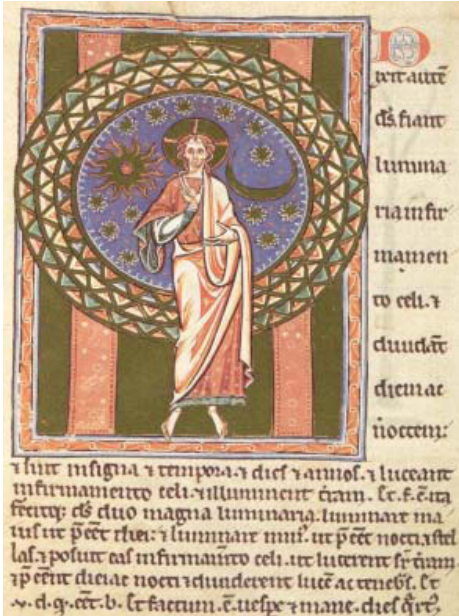 D
ixit autē
d̄s. fiant
lumina
ria in fir
mamen
to celi. ⁊
diuidāt
diem ac
noctem:
⁊ sint in signa ⁊ tempora. ⁊ dies ⁊ annos. ⁊ luceant
in firmamento celi. ⁊ illuminent t̄ram. Et. f. ē. ita
fecitq; d̄s duo magna luminaria. luminare ma
ius ut p̄eēt diei: ⁊ luminare min᾽. ut p̄eēt nocti. ⁊ stel
las. ⁊ posuit eas in firmam̄to celi. ut lucerent sr̄ t̄ram
⁊ p̄eēnt diei ac nocti ⁊ diuiderent lucē ac teneb̄s. Et
v. d. q. eēt. b. Et factum. ē. uespe ⁊ mane. dies